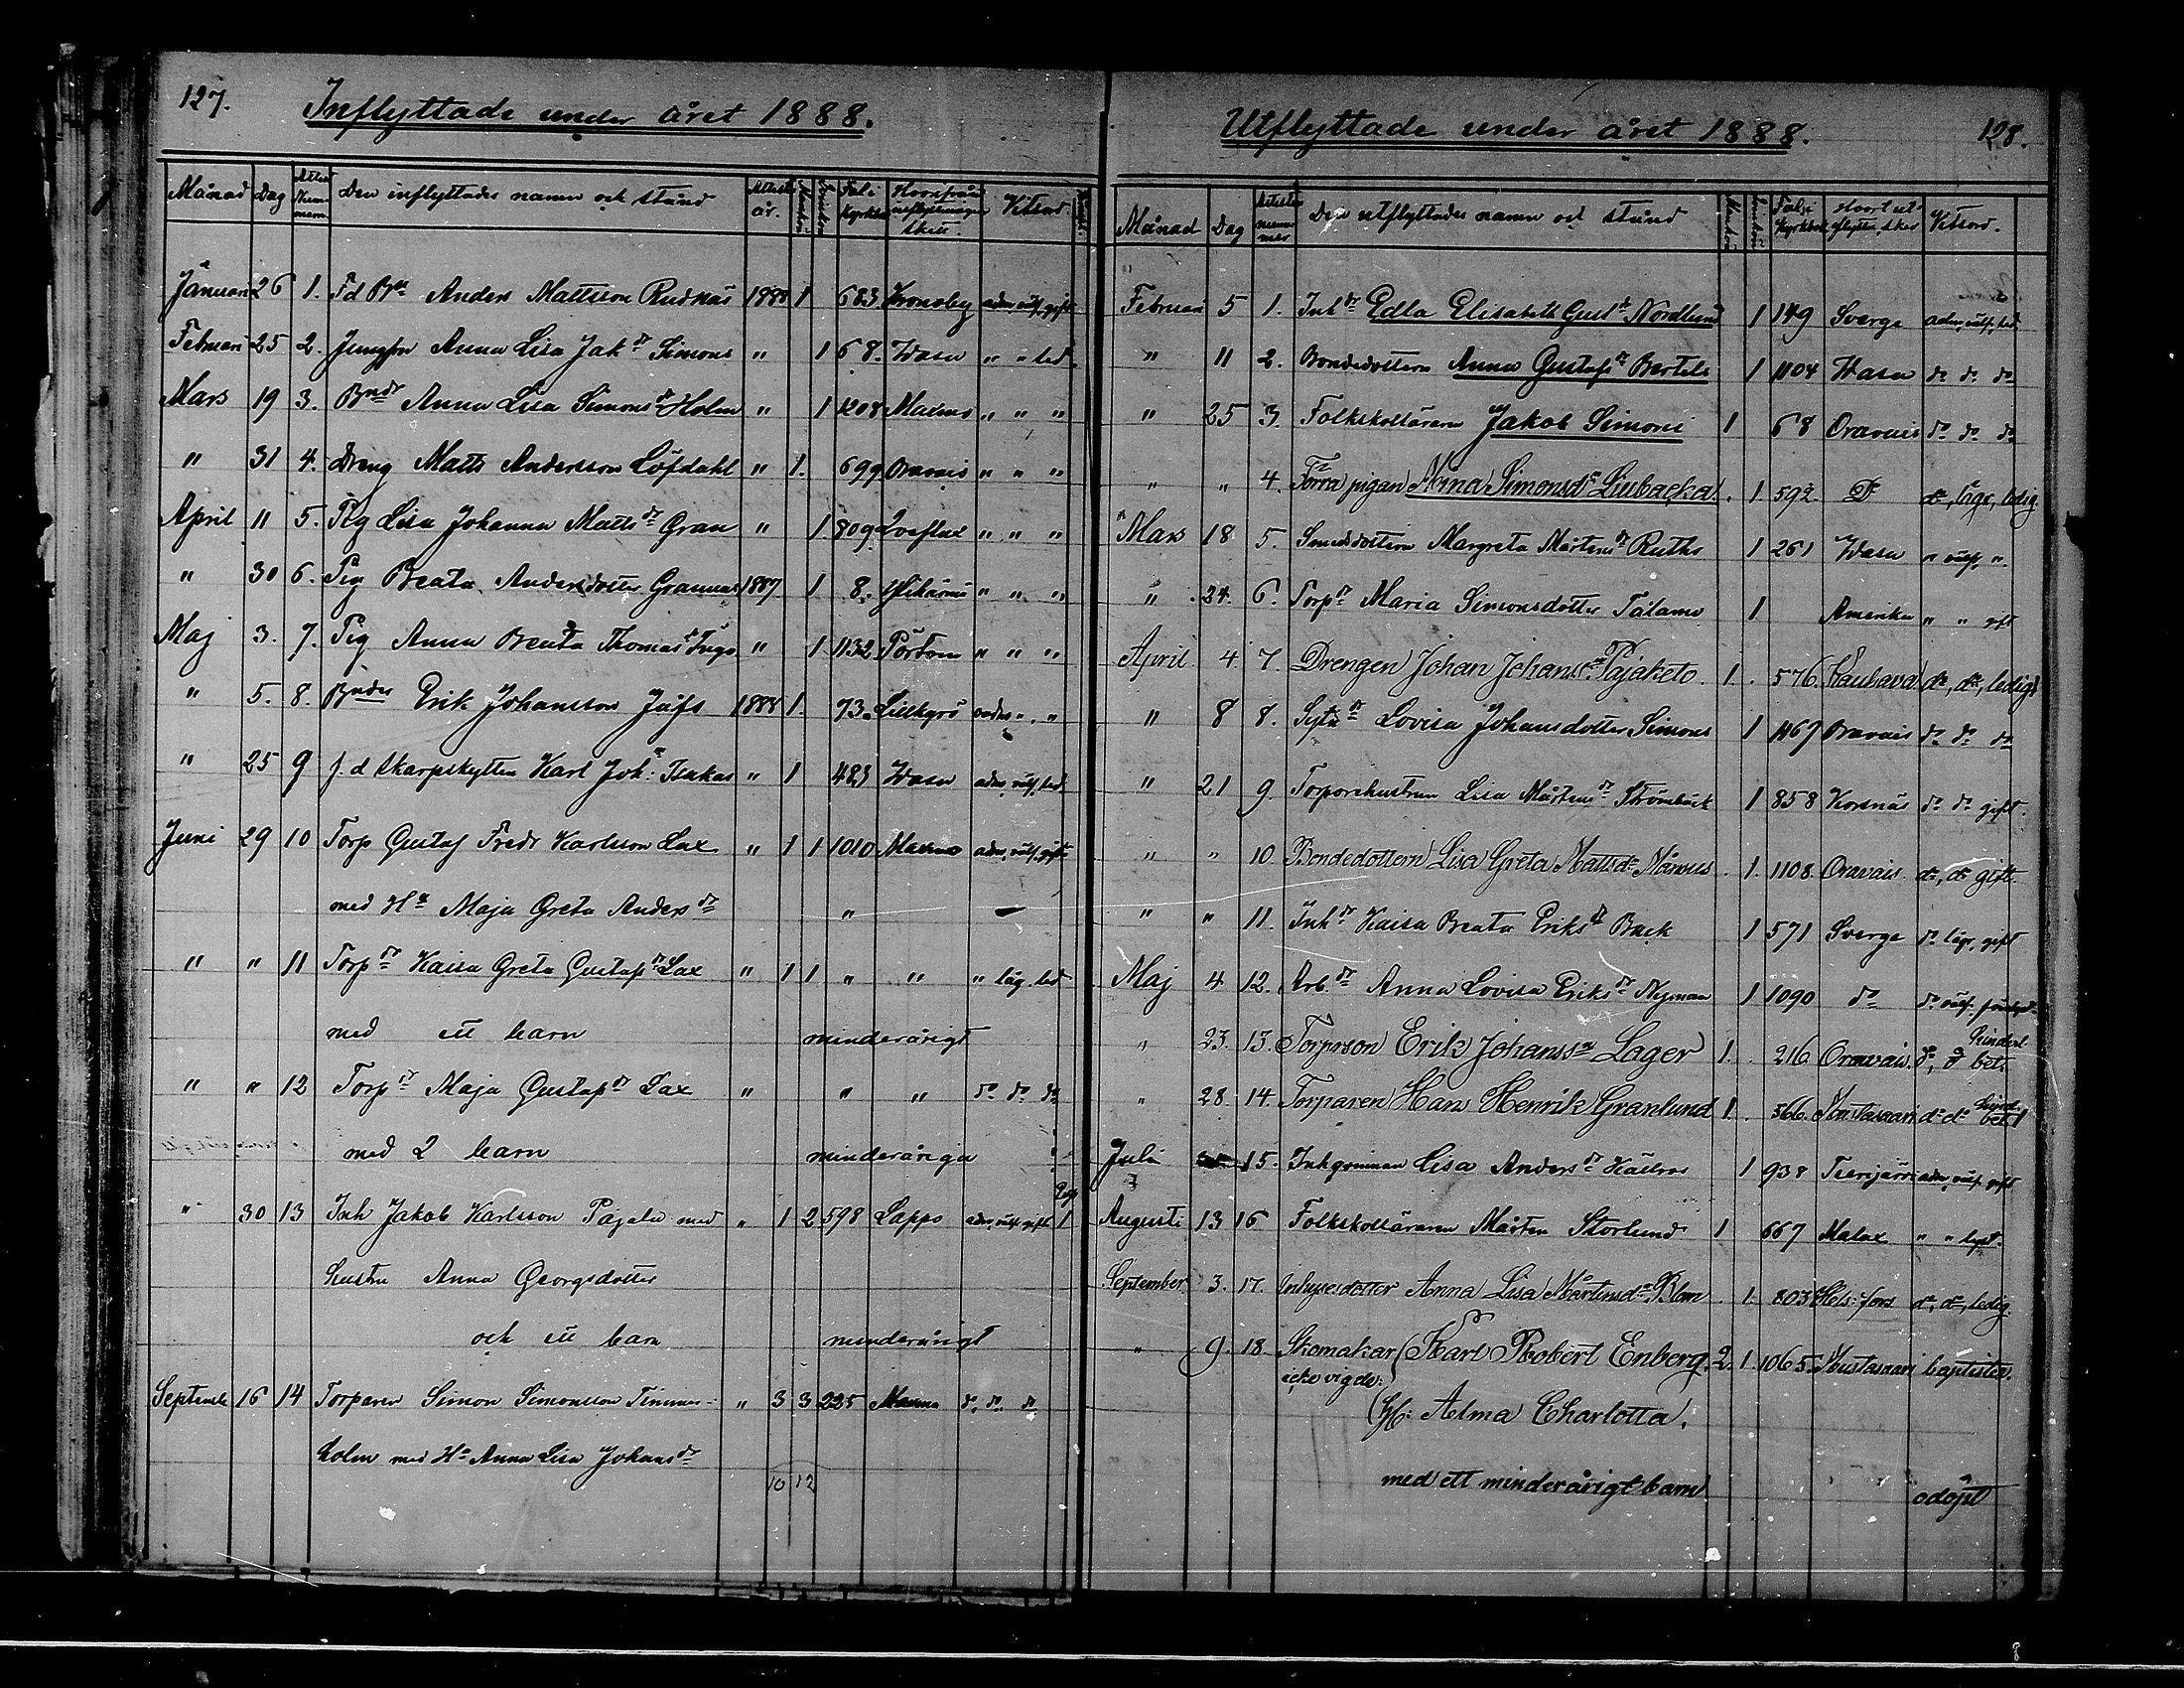 127.
Inflyttade under året 1888.
Månad Dag Attest Nummern Den inflyttades namn och stånd Attest år. Mankön Qvinkön Fol. i Kyrkb. Hvarifrån inflyttningen sker Vitsord
Januari 26 1. Fd Bn Anders Mattsson Rudnäs 1888 1 683 Kronoby adm, välf, gift
Februari 25 2. Jungfru Anna Lisa Jak dr Simons " 1 68. Wasa " " led.
Mars 19 3. Bndr Anna Lisa Simons dr Holm " 1 1208 Maxmo " " "
" 31 4. Dreng Matts Andersson Löfdahl " 1. 699 Oravais " " "
April 11 5. Pig Lisa Johanna Matts dr Gran " 1. 809 Qveflax " " "
" 30 6. Pig Beata Andersdotter Grannas 1887 1 8. Ylihärmä " " "
Maj 3. 7. Pig Anna Beata Thomas dr Ingo " 1 1132 Pörtom " " "
" 5. 8. Bnds Erik Johansson Jåfs 1888 1. 73. Lillkyro " "
" 25 9 f. d skarpskytten Karl Joh: Isakas " 1 483 Wasa adm, välf, led
Juni 29 10 Torp Gustaf Fredr Karlsson Lax " 1 1 1010 Maxmo adm, välf, gift
med Hu Maja Greta Anders dr "
" " 11 Torp dr Kaisa Greta Gustafs dr Lax " 1 1 " " " läg. led
med ett barn minderårigt
" " 12 Torp dr Maja Gustafs dr Lax " " " do do do
med 2 barn minderåriga
" 30 13 Inh Jakob Karlsson Pajala med " 1 2 598 Lappo adm, välf, gift 1
hustru Anna Georgsdotter
och ett barn minderårigt
September 16 14 Torparen Simon Simonsson Timmer- " 3 3 225 Maxmo do. do. do
holm med Hu Anna Lisa Johans dr
10 12
Utflyttade under året 1888.
128.
Månad Dag Attest nummer Den utflyttades namn och stånd Mankön Qvinkön Fol. i Kyrkbok Hvart utflyttn. sker Vitsord.
Februari 5 1. Inh dr Edla Elisabeth Gust dr Nordlund 1 149 Sverge adm, välf, led.
" 11 2. Bondedottern Anna Gustafs dr Bertils 1 1104 Wasa do do do
" 25 3. Folkskolläraren Jakob Simons 1 68 Oravais do do do
" " 4. Förra pigan Anna Simonsdr Liubacka. 1. 592. Do do, läge, ledig.
" Mars 18 5. Smedsdottern Margreta Mårtens dr Ruths 1 261 Wasa " välf, "
" 24. 6. Torp dr Maria Simonsdotter Tålamo 1 Amerika " " gft
April 4 7. Drengen Johan Johanss. Pajaketo. 1. 576. Kauhava do, do, ledig
" 8 8. Sytn Lovisa Johansdotter Simons 1 1167 Oravais do do do
" 21 9. Torparehustrun Lisa Mårtens dr Strömbäck 1 858 Korsnäs do do gift.
" " 10. Bondedottern Lisa Greta Mattsdr Måsnus. 1. 1108. Oravais. do, do gift.
" " 11. Inh dr Kaisa Beata Eriks dr Back 1 571 Sverge do läge, gift
Maj 4 12. Arb dr Anna Lovisa Eriks dr Nyman 1 1090 do do välf.
" 23. 13. Torpson Erik Johanssn Lager 1. 216 Oravais. do, do hinderl. bet.
" 28. 14. Torparen Hans Henrik Granlund 1. 566. Mustasaari do do hind. bet. 1
Juli 15. Inhysqvinnan Lisa Anders dr Källros 1 938 Terijärvi adm, välf, gift
Augusti 13 16 Folkskolläraren Mårten Storlund 1 667 Malax " "
September 3. 17. Inhysesdotter Anna Lisa Mårtensdr Blom. 1. 803 Hels:fors do, do, ledig.
" 9. 18. Skomakar (Karl Robert Enberg. 2. 1. 1065. Mustasaari baptister.
icke vigde:
(H: Aelma Charlotta.
med ett minderårigt barn odöpt